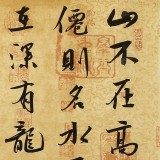 山不在高
僊則名水
在深有龍